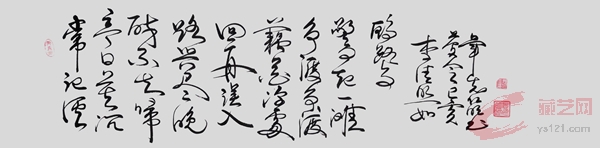 常记溪
亭日暮沉
醉不知歸
路兴尽晚
回舟误入
藕花深處
争渡争渡
驚起一滩
鸥鹭
李清照如
夢令己亥
書
藏艺网
ys121.com